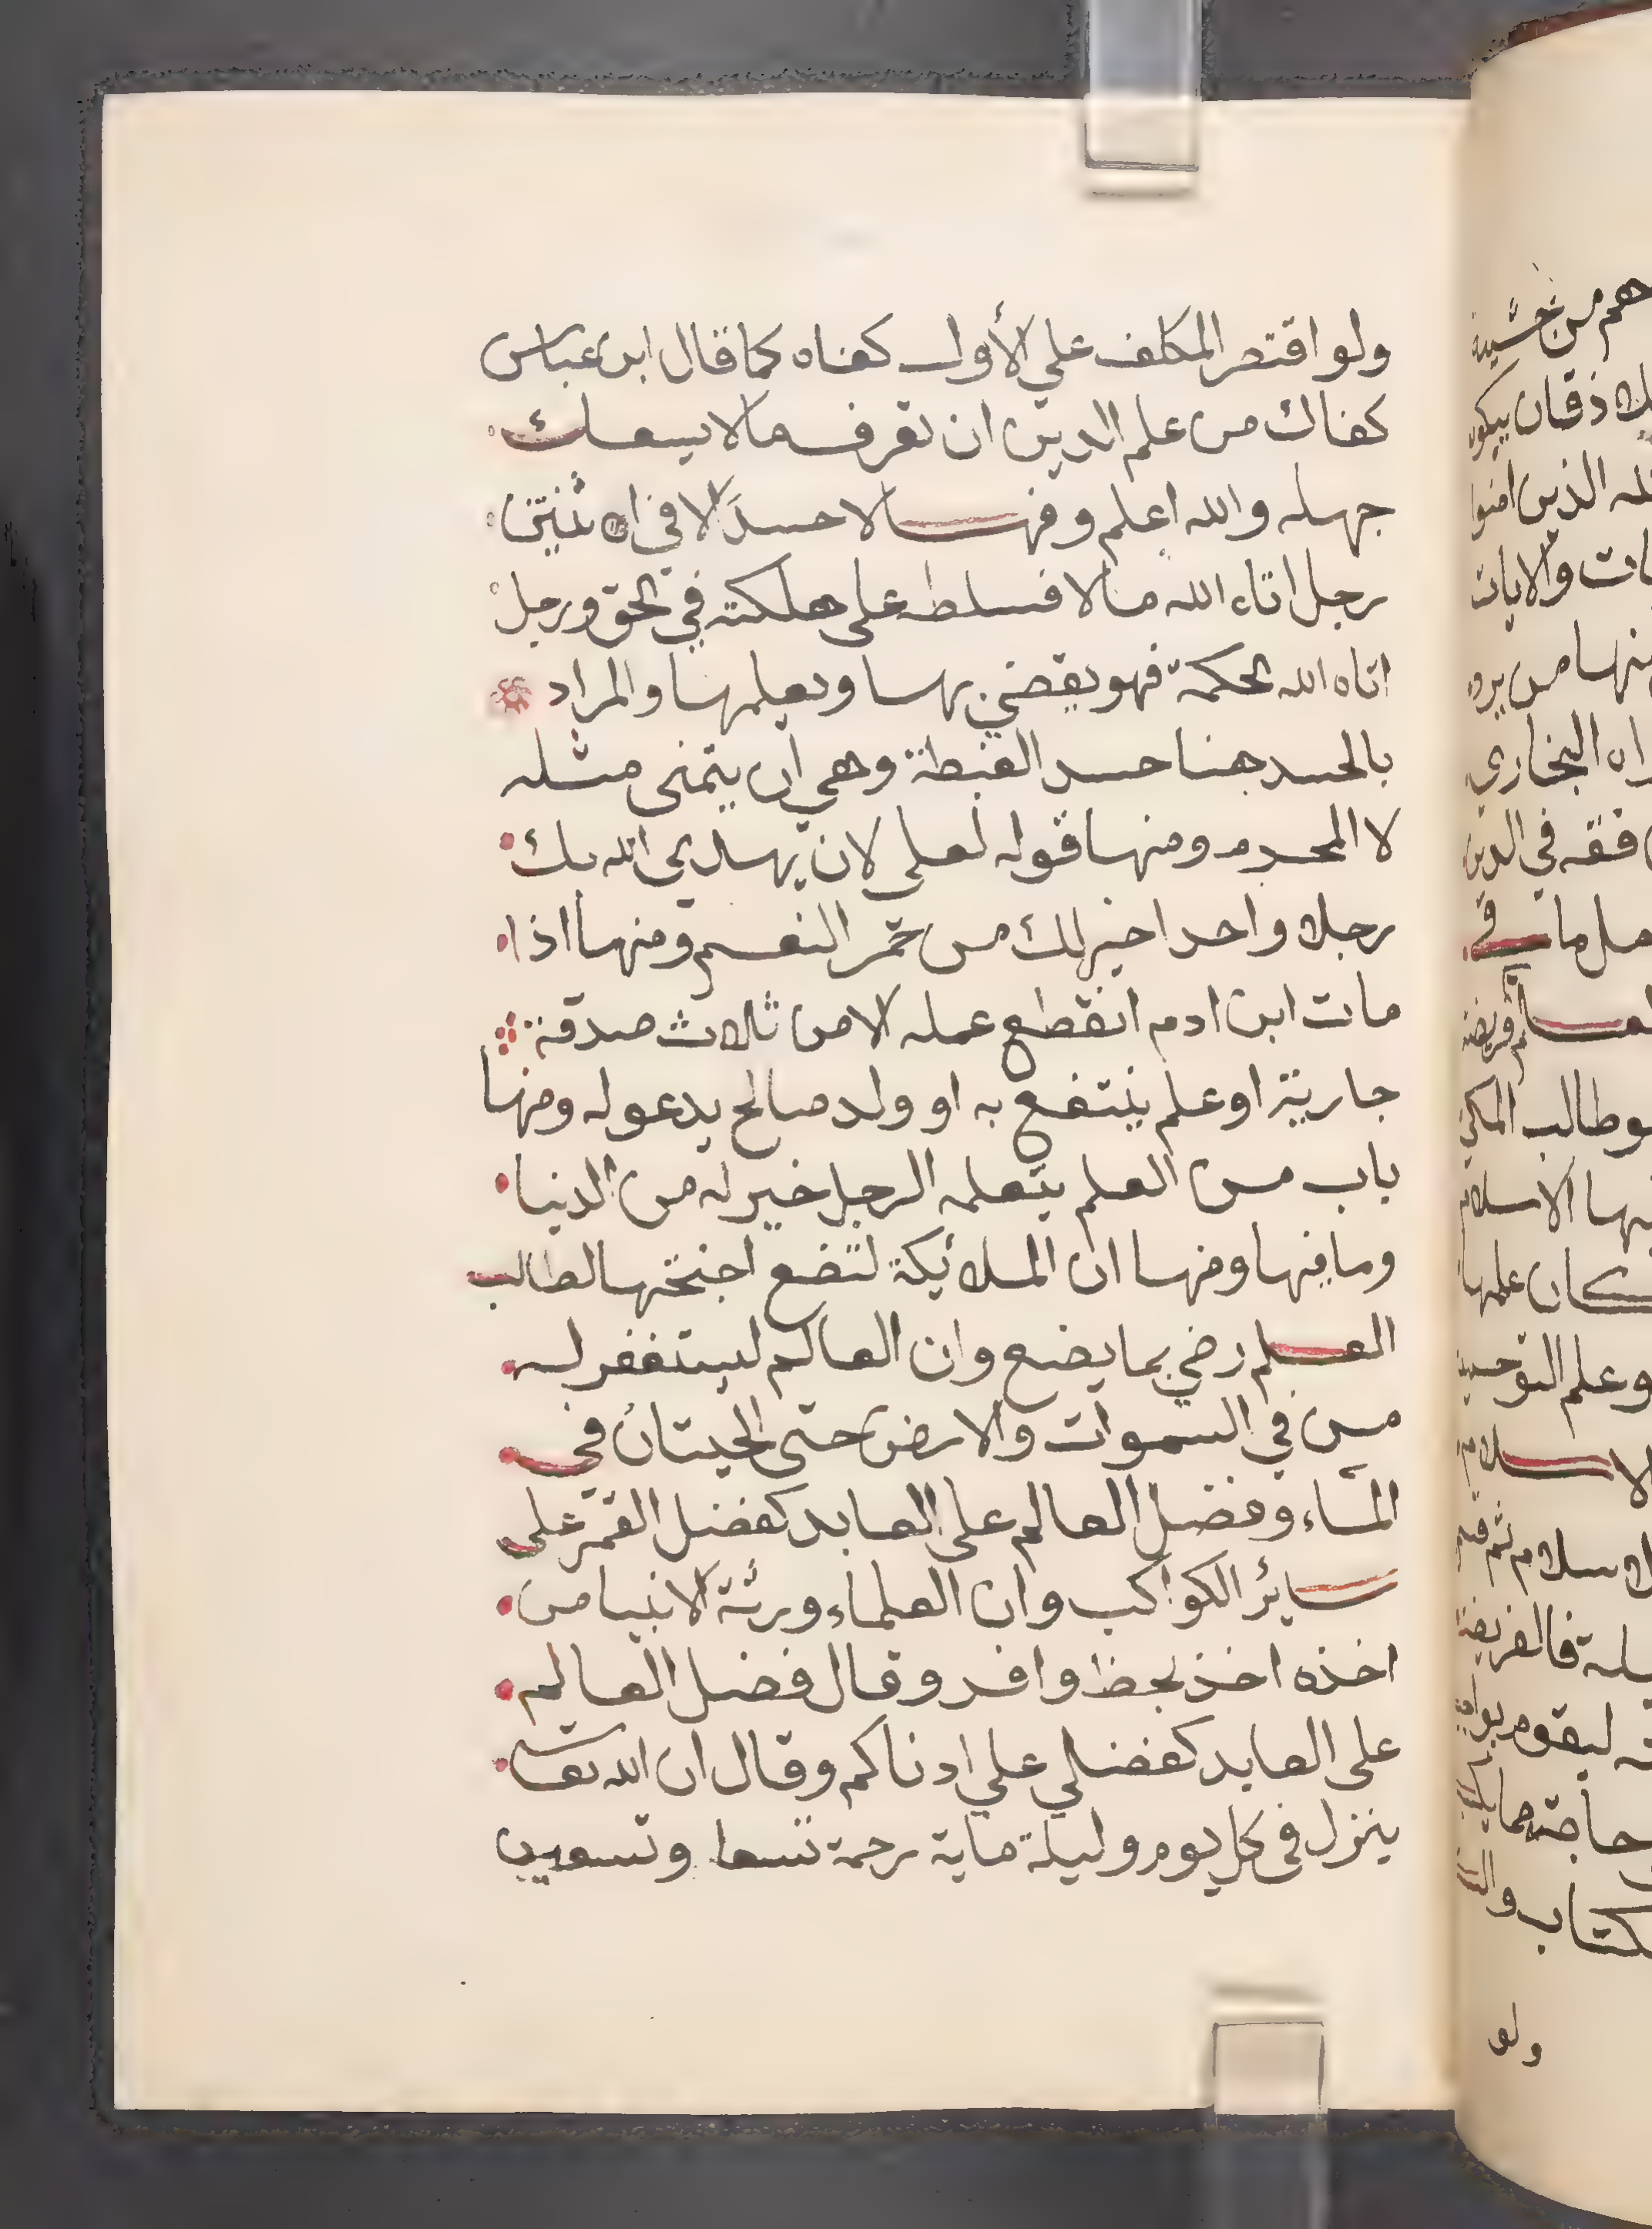 ولو اقتصر المكلف علي الأول كفاه كما قال ابن عباس
كفاك من علم الدين ان تعرف ما لا يسعك
جهله والله اعلم ومنها لا حسد الا في اثنتين
رجل اتاه الله مالا فسلط على هلكته في الحق ورجل
اتاه الله الحكمة فهو يقضي بها ويعلمها والمراد
بالحسد هنا حسد الغبطة وهي ان يتمنى مثله
لا المحرم ومنها قوله لعلي لان يهدى الله بك
رجلا واحدا خير لك من حمر النعم ومنها اذا
مات ابن ادم انقطع عمله الا من ثلاث صدقة
جارية او علم ينتفع به او ولد صالح يدعو له ومنها
باب من العلم يتعلمه الرجل خير له من الدنيا
وما فيها ومنها ان الملائكة لتضع اجنحتها لطالب
العلم رضي بما يضع وان العالم ليستغفر له
من في السموات والارض حتى الحيتان في
الماء وفضل العالم على العابد كفضل القمر على
سائر الكواكب وان العلماء ورثة الانبيا من
اخذه اخذ بحظ وافر وقال فضل العالم
على العابد كفضلي علي ادناكم وقال ان الله تعالى
ينزل فى كل يوم وليلة ماية رحمة تسعا وتسعين
هم من خشية
ذقان يبكون
الذين امنوا
والايات
منها من يرد
البخاري
فقه في الدين
مات في
طالب المكي
الاسلام
كان علمها
وعلم التوحيد
سلام ثم
فالفريضة
ليقوم
والكتاب
ولو